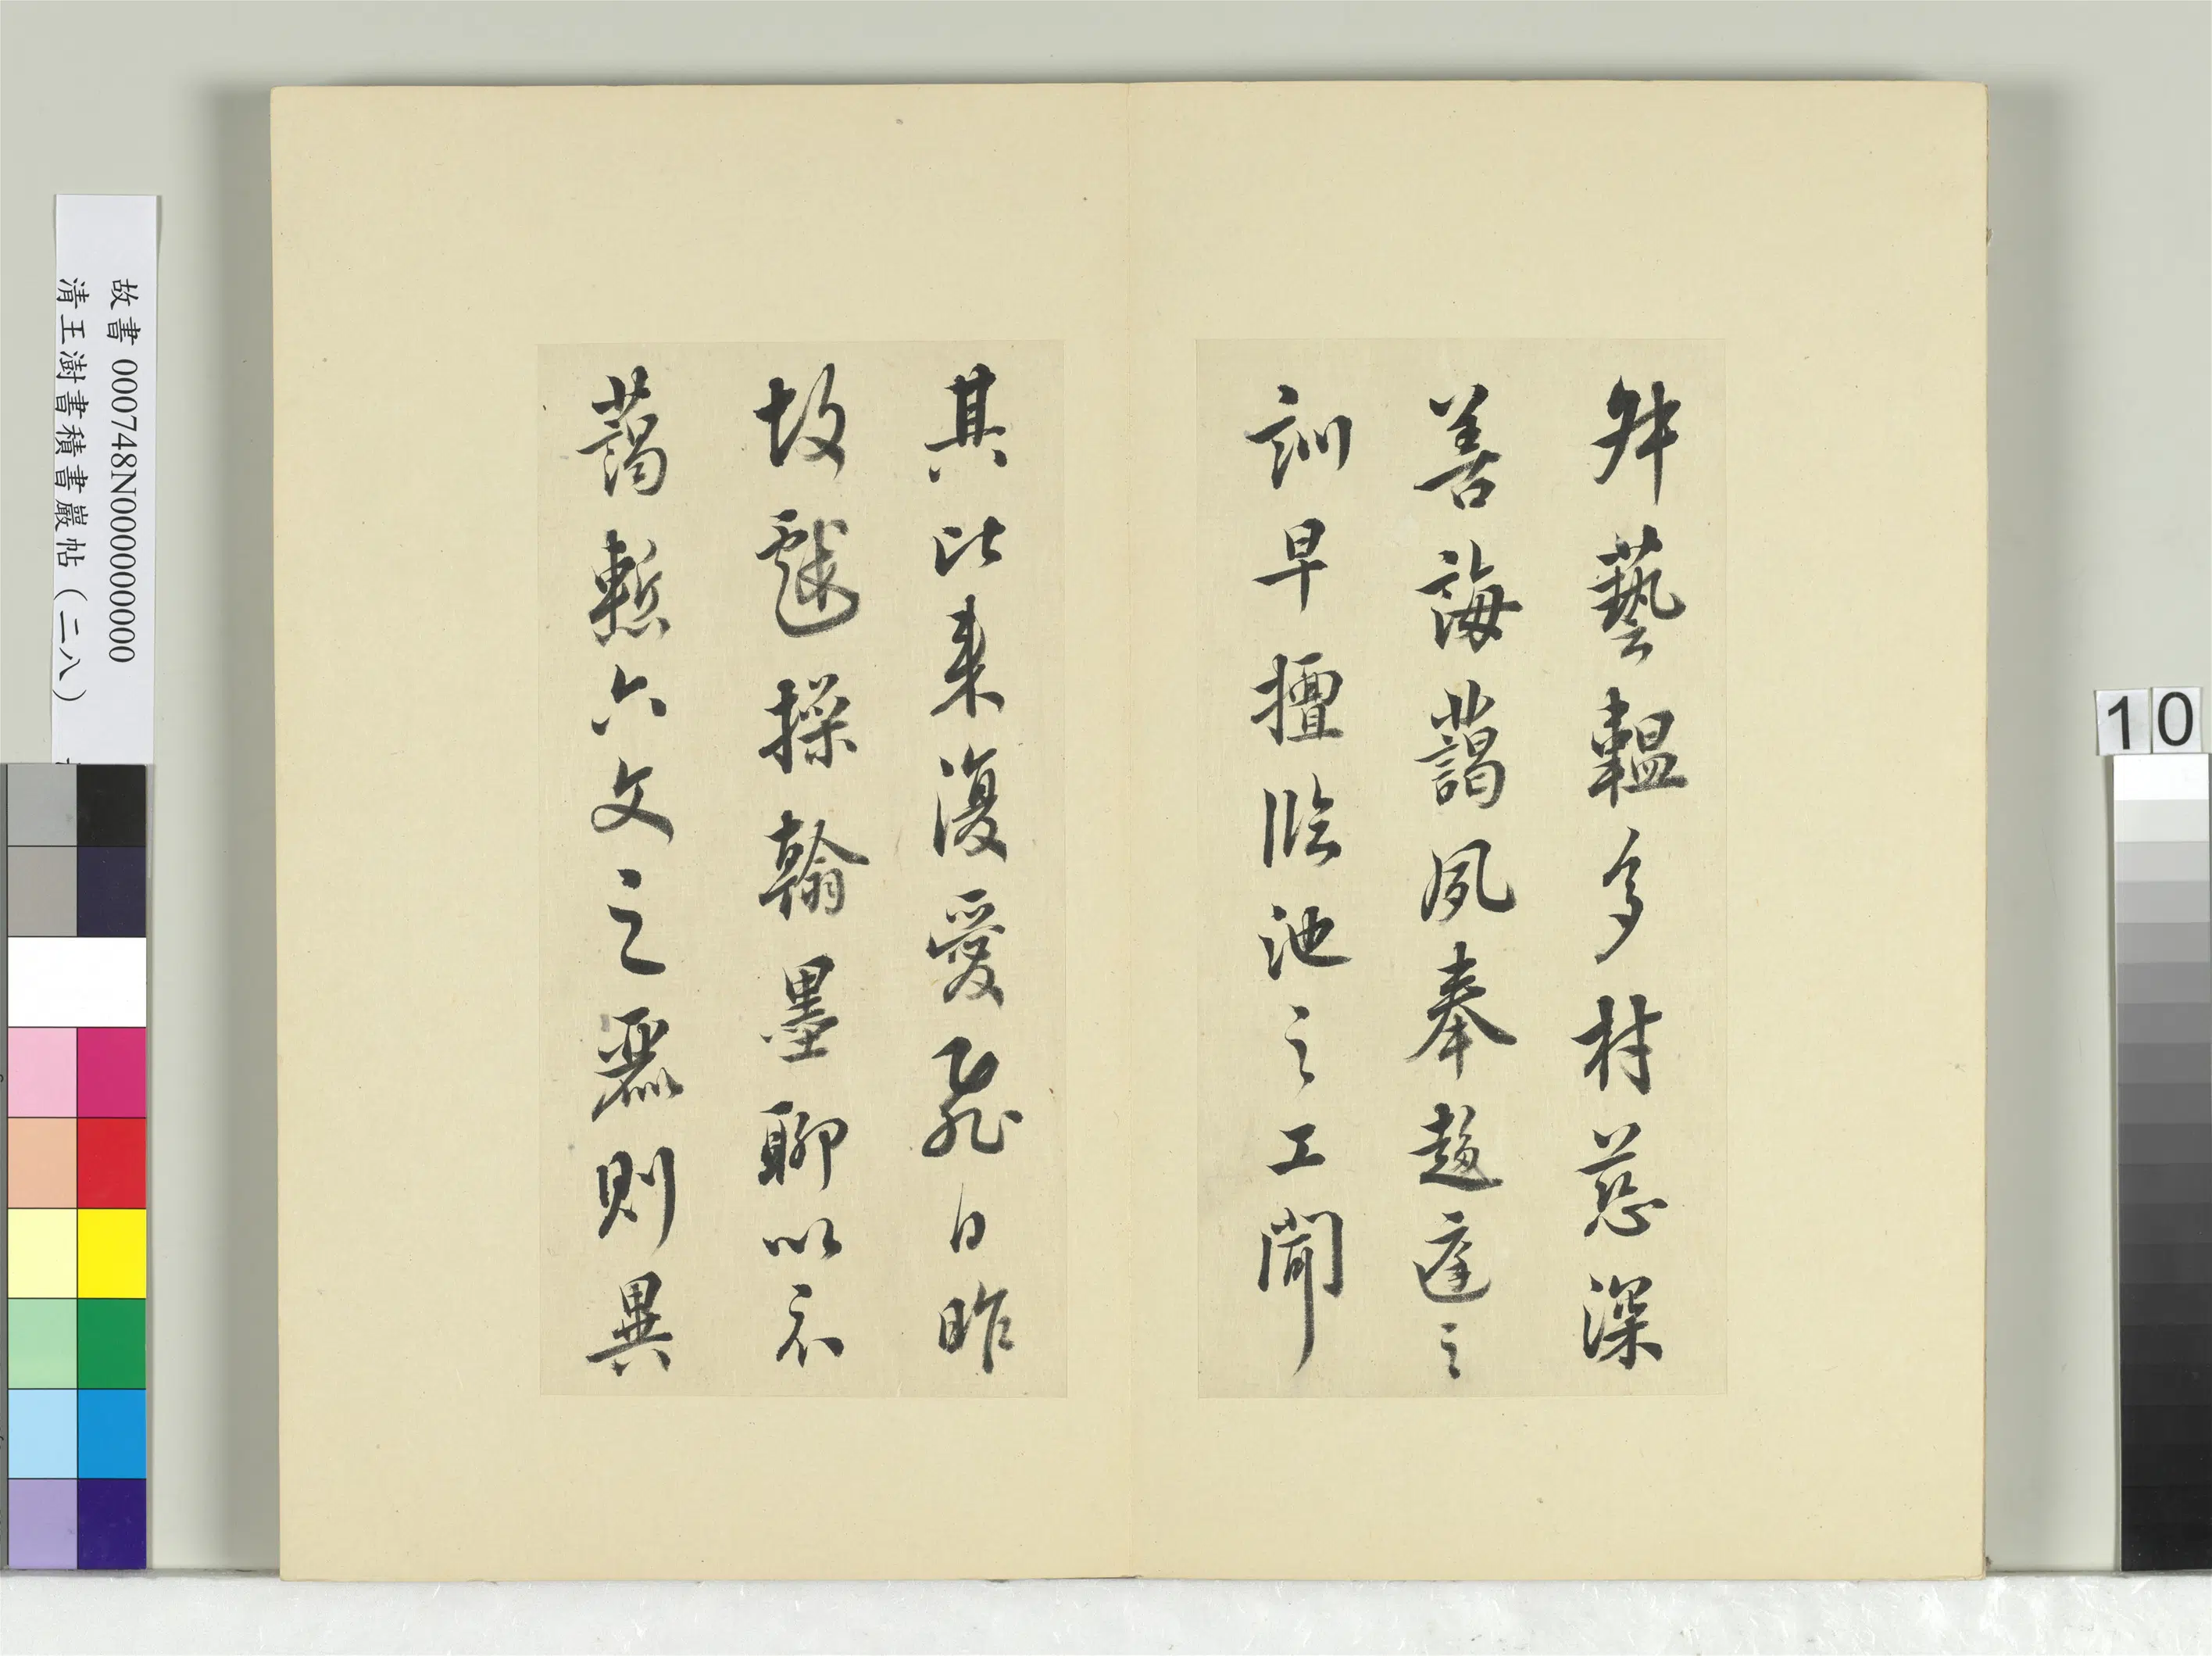 舛藝韞多材慈深
善誨藹夙奉趨庭之
訓早擅臨池之工聞
其比来復愛飛白昨
故戲操翰墨聊以示
藹慙六文之麗則異
故書 000748N000000000
清王澍書積書巖帖（二八）
10